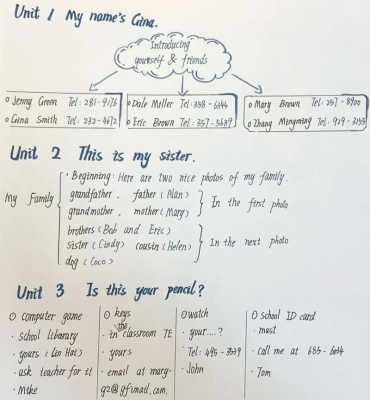 Unit 1 My name's Gina.
Introducing
yourself & friends
o Jenny Green Tel: 281-9176
o Gina Smith Tel: 232-4672
o Dale Miller Tel: 358-6344
o Eric Brown Tel: 357-5689
o Mary Brown Tel: 257-8900
o Zhang Mingming Tel: 929-3155
Unit 2 This is my sister.
My Family
· Beginning: Here are two nice photos of my family.
grandfather, father (Alan)
grandmother, mother (Mary)
In the first photo
brothers (Bob and Eric)
sister (Cindy) cousin (Helen)
dog (Coco)
In the next photo
Unit 3 Is this your pencil?
o computer game
· school liberary
· yours
· ask teacher for it
· Mike
o keys
the
· in classroom 7E
· yours
· email at mary-
g2@gfimail.com.
o watch
· your....?
· Tel: 495-3539
· John
o school ID card
· must
· call me at 685-6034
· Tom